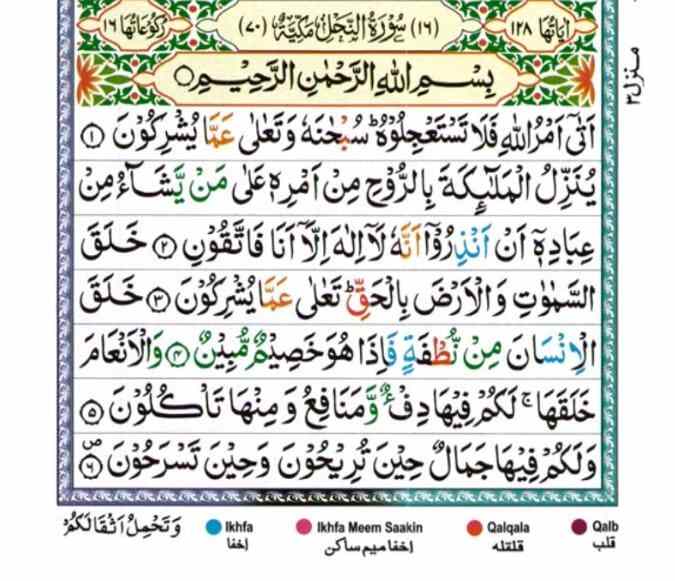 اٰيَاتُهَا ١٢٨
(١٦) سُوْرَةُ النَّحْلِ مَكِّيَّةٌ (٧٠)
رُكُوْعَاتُهَا ١٦
بِسْمِ اللّٰهِ الرَّحْمٰنِ الرَّحِيْمِ ○
منزل ٣
اَتٰۤى اَمْرُ اللّٰهِ فَلَا تَسْتَعْجِلُوْهُ ؕ سُبْحٰنَهٗ وَتَعٰلٰى عَمَّا يُشْرِكُوْنَ ①
يُنَزِّلُ الْمَلٰٓئِكَةَ بِالرُّوْحِ مِنْ اَمْرِهٖ عَلٰى مَنْ يَّشَآءُ مِنْ
عِبَادِهٖۤ اَنْ اَنْذِرُوْۤا اَنَّهٗ لَاۤ اِلٰهَ اِلَّاۤ اَنَا فَاتَّقُوْنِ ② خَلَقَ
السَّمٰوٰتِ وَالْاَرْضَ بِالْحَقِّ ؕ تَعٰلٰى عَمَّا يُشْرِكُوْنَ ③ خَلَقَ
الْاِنْسَانَ مِنْ نُّطْفَةٍ فَاِذَا هُوَ خَصِيْمٌ مُّبِيْنٌ ④ وَالْاَنْعَامَ
خَلَقَهَا ۚ لَكُمْ فِيْهَا دِفْءٌ وَّمَنَافِعُ وَمِنْهَا تَاْكُلُوْنَ ⑤
وَلَكُمْ فِيْهَا جَمَالٌ حِيْنَ تُرِيْحُوْنَ وَحِيْنَ تَسْرَحُوْنَ ⑥ ص
وَتَحْمِلُ اَثْقَالَكُمْ
Ikhfa
اخفا
Ikhfa Meem Saakin
اخفا ميم ساكن
Qalqala
قلقله
Qalb
قلب